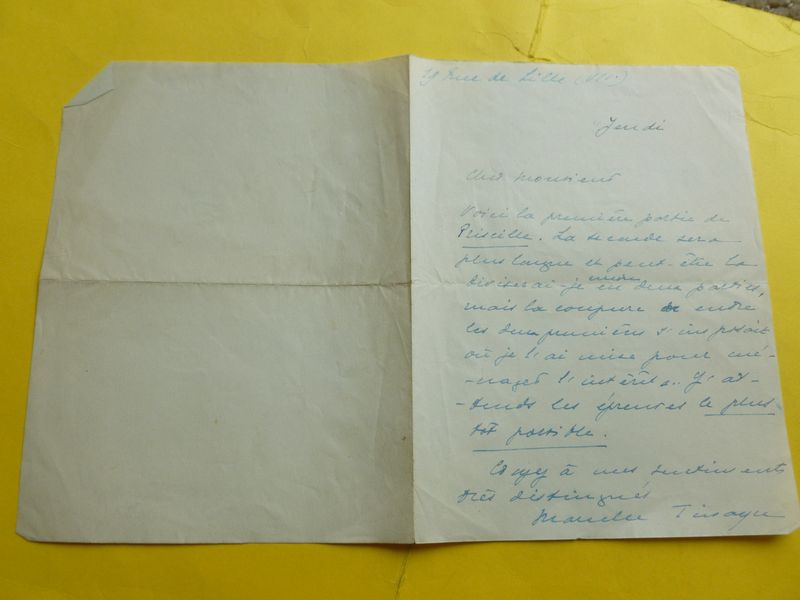 19 Rue de Lille (VIIe)
Jeudi
Cher Monsieur
Voici la première partie de
Priscille. La seconde sera
plus longue et peut-être la
diviserai-je en deux parties,
mais la coupure entre
les deux premières s'imposait
où je l'ai mise pour mé-
-nager l'intérêt... J'at-
-tends les épreuves le plus
tôt possible.
Croyez à mes sentiments
très distingués
Marcelle Tinayre